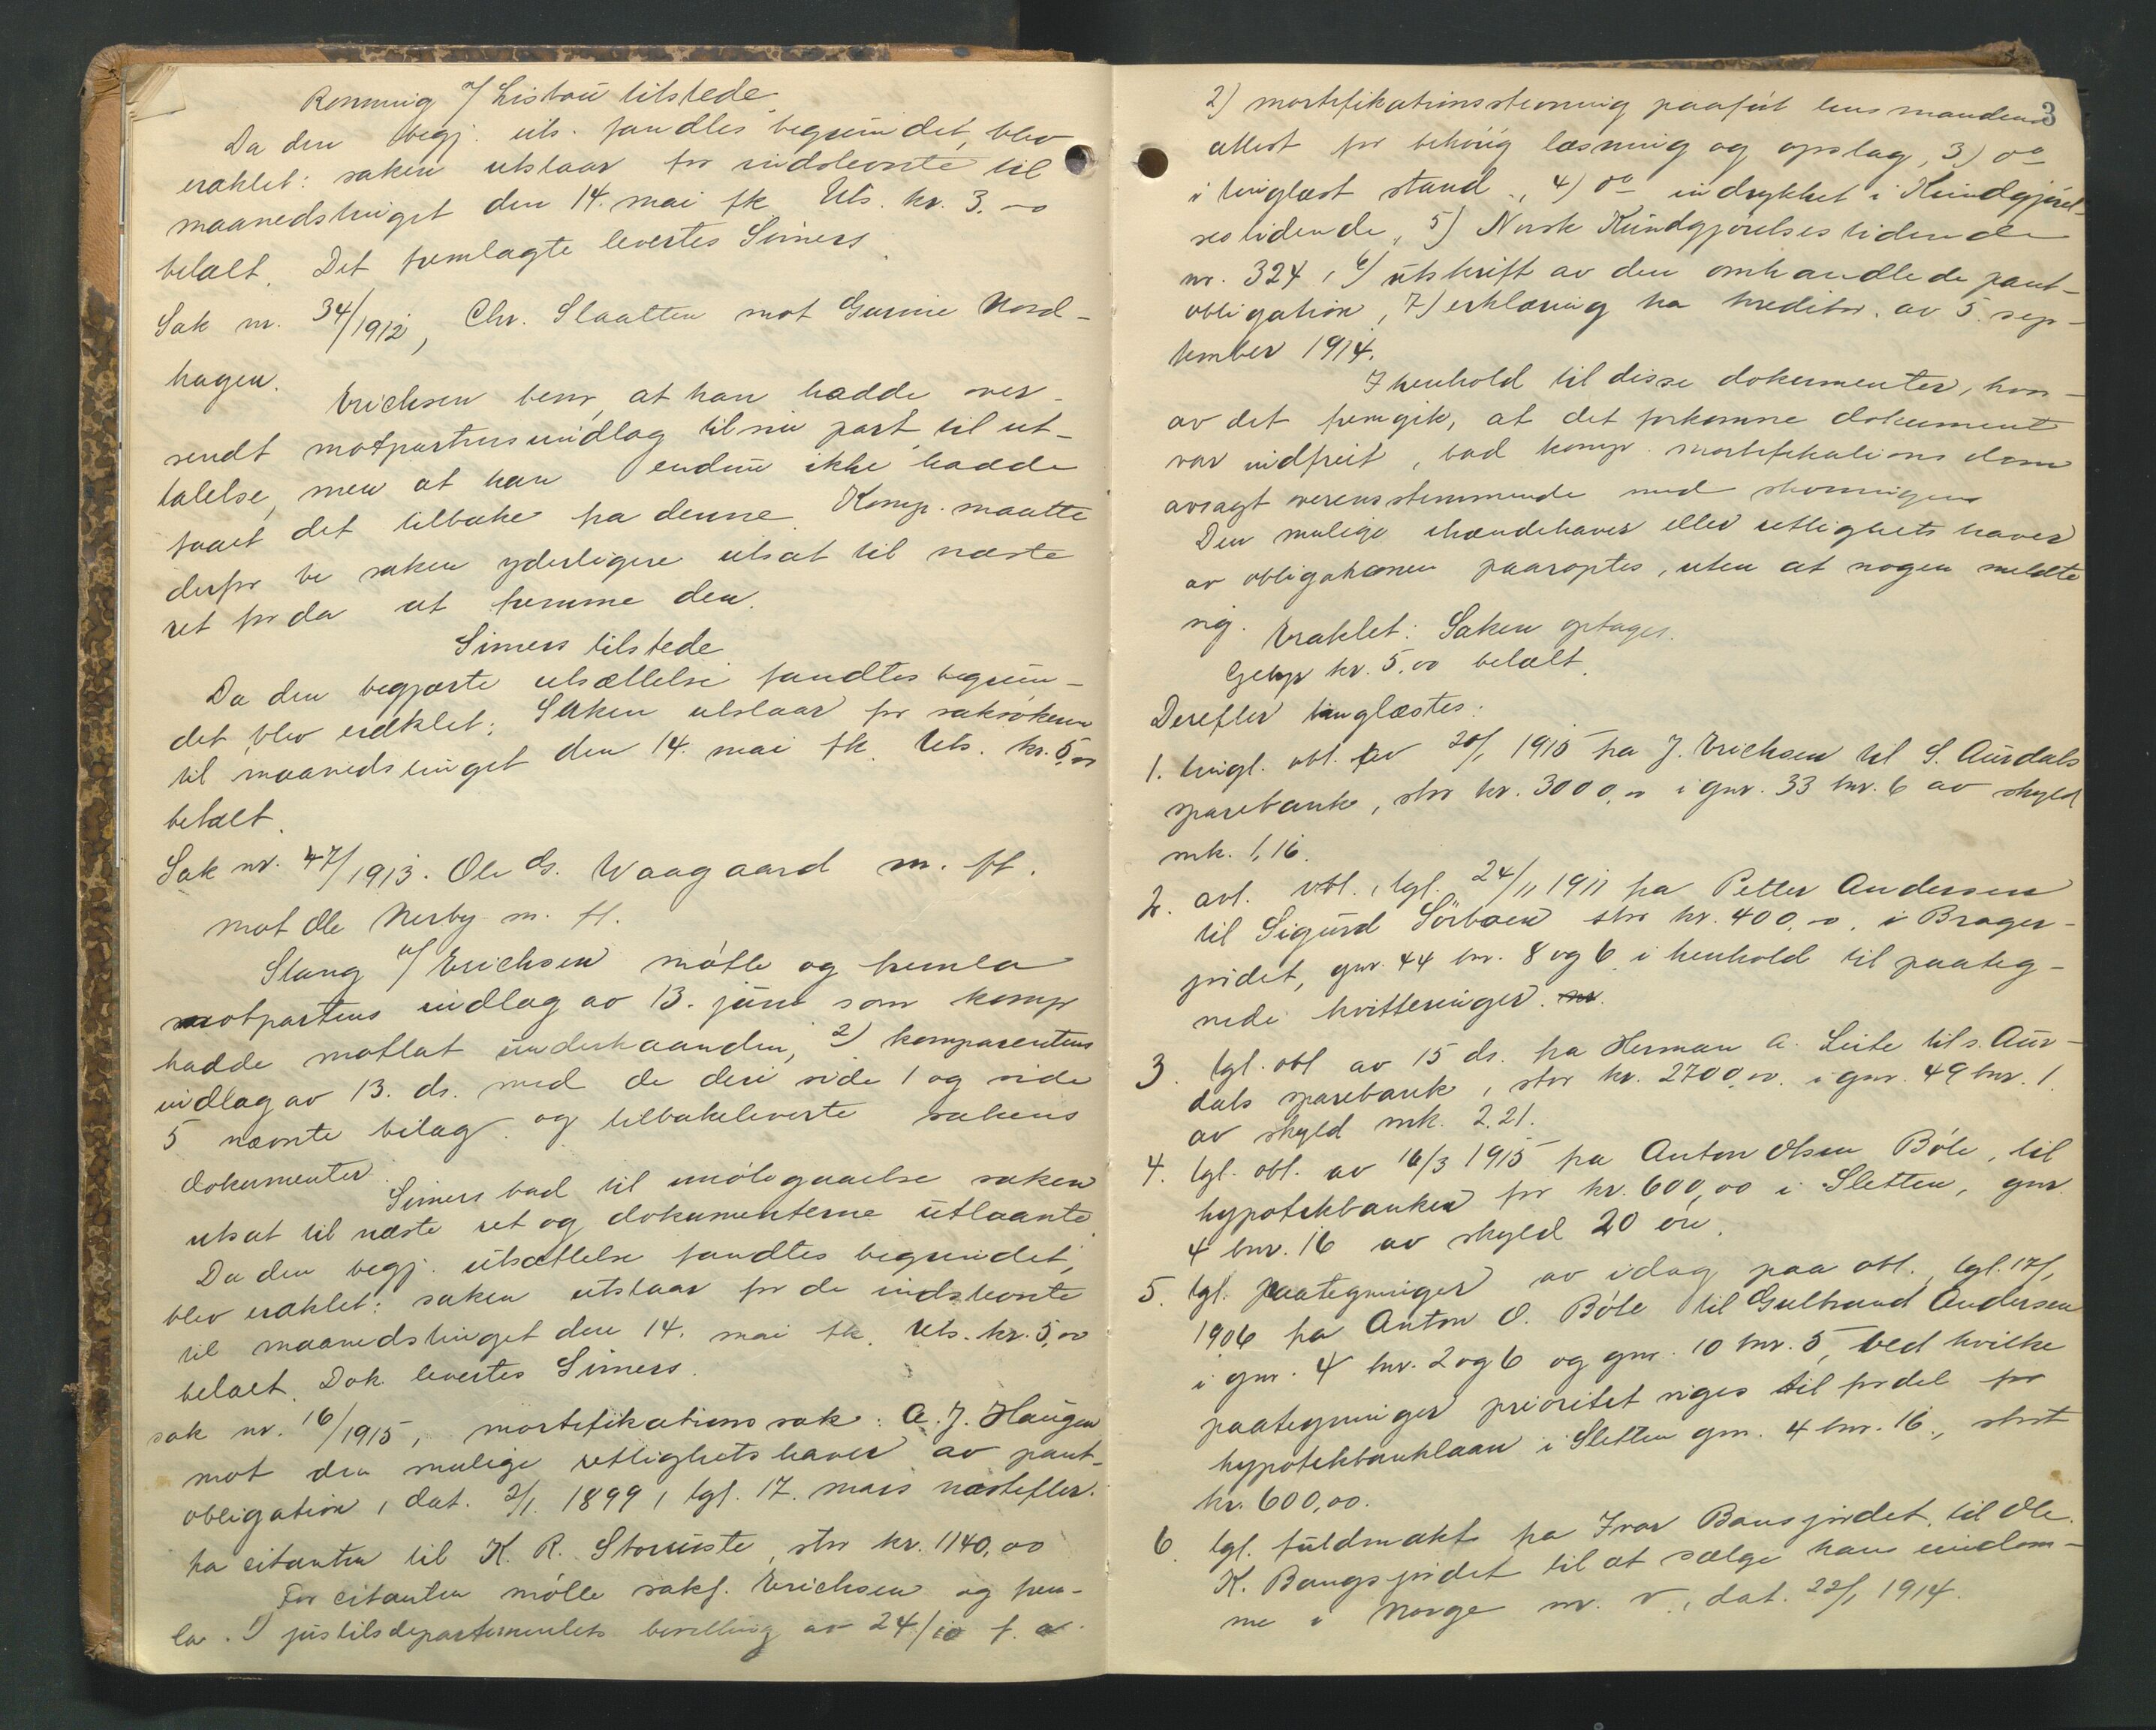 Rønning f/ Listou tilstede.
Da den begj. uts. fandtes begrundet, blev
eraklet: saken utstaar for indstevnte til
maanedstinget den 14. mai fk. Uts. kr. 3.00
betalt. Det fremlagte levertes Simers
Sak nr. 34/1912, Chr. Slaatten mot Gunnie Nord-
hagen.
Erichsen bem, at han hadde over-
sendt motpartens indlag til sin part til ut-
talelse, men at han endnu ikke hadde
faaet det tilbake fra denne. Komp. maatte
derfor be saken yderligere utsat til næste
ret for da at fremme den.
Simers tilstede
Da den begjærte utsættelse fandtes begrun-
det blev eraklet: Saken utstaar for saksøkeren
til maanedstinget den 14. mai fk. Uts. kr. 5,00
betalt.
Sak nr. 47/1913. Ole G. Waagaard m. fl.
mot Ole Nerby m. fl.
Stang f/ Erichsen møtte og fremla
motpartens indlag av 13. juni som komp
hadde mottat underhaanden, 2) komparentens
indlag av 13. ds. med de deri side 1 og side
5 nævnte bilag og tilbakeleverte sakens
dokumenter.
Simers bad til imøtegaaelse saken
utsat til næste ret og dokumenterne utlaante.
Da den begj. utsættelse fandtes begrundet,
blev eraklet: saken utstaar for de indstevnte
til maanedstinget den 14. mai fk. Uts. kr. 5,00
betalt. Dok. levertes Simers.
sak nr. 16/1915, mortifikationssak: A. J. Haugen
mot den mulige rettighetshaver av pant-
obligation, dat. 2/1 1899, tgl. 17. mars næstefter.
fra citanten til K. R. Storuste, stor kr. 1140,00
For citanten møtte sakf. Erichsen og frem-
la. 1) justitsdepartementets bevilling av 24/10 f. a.
3
2) mortifikationsstevning paaført lensmandens
attest for behørig læsning og opslag, 3) do
i tinglæst stand, 4) do indrykket i Kundgjørel-
sestidende, 5) Norsk Kundgjørelsestidende
nr. 324, 6) utskrift av den omhandlede pant-
obligation, 7) erklæring fra kreditor av 5. sep-
tember 1914.
I henhold til disse dokumenter, hvor-
av det fremgik, at det forkomne dokument
var indfriet, bad komp. mortifikationsdom
avsagt overensstemmende med stevningen
Den mulige ihændehaver eller rettighetshaver
av obligationen paaroptes, uten at nogen meldte
sig.
Eraklet: Saken optages.
Gebyr kr. 5.00 betalt.
Derefter tinglæstes:
1. tingl. obl. av 20/1 1915 fra J. Erichsen til S. Aurdals
sparebank, stor kr. 3000,00 i gnr. 33 bnr. 6 av skyld
mk. 1,16.
2. avl. obl., tgl. 24/11 1911 fra Petter Andersen
til Sigurd Sørboen stor kr. 400,00, i Brager-
jordet, gnr. 44 bnr. 8 og 6 i henhold til paateg-
nede kvitteringer.
3. tgl. obl av 15 ds. fra Herman A. Leite til s. Aur-
dals sparebank, stor kr. 2700,00. i gnr. 49 bnr. 1.
av skyld mk. 2.21.
4. tgl. obl. av 16/3 1915 fra Anton Olsen Bøle, til
hypotekbanken for kr. 600,00 i Sletten, gnr.
4 bnr. 16 av skyld 20 øre.
5. tgl. paategninger av idag paa obl., tgl. 17/1
1906 fra Anton O. Bøle til Gulbrand Andersen
i gnr. 4 bnr. 2 og 6 og gnr. 10 bnr. 5, ved hvilke
paategninger prioritet viges til fordel for
hypotekbanklaan i Sletten gnr. 4 bnr. 16., stort
kr. 600,00.
6. tgl. fuldmakt fra Ivar Bangsjordet, til Ole
K. Bangsjordet til at sælge hans eiendom-
me i Norge m. v., dat. 22/1 1914.